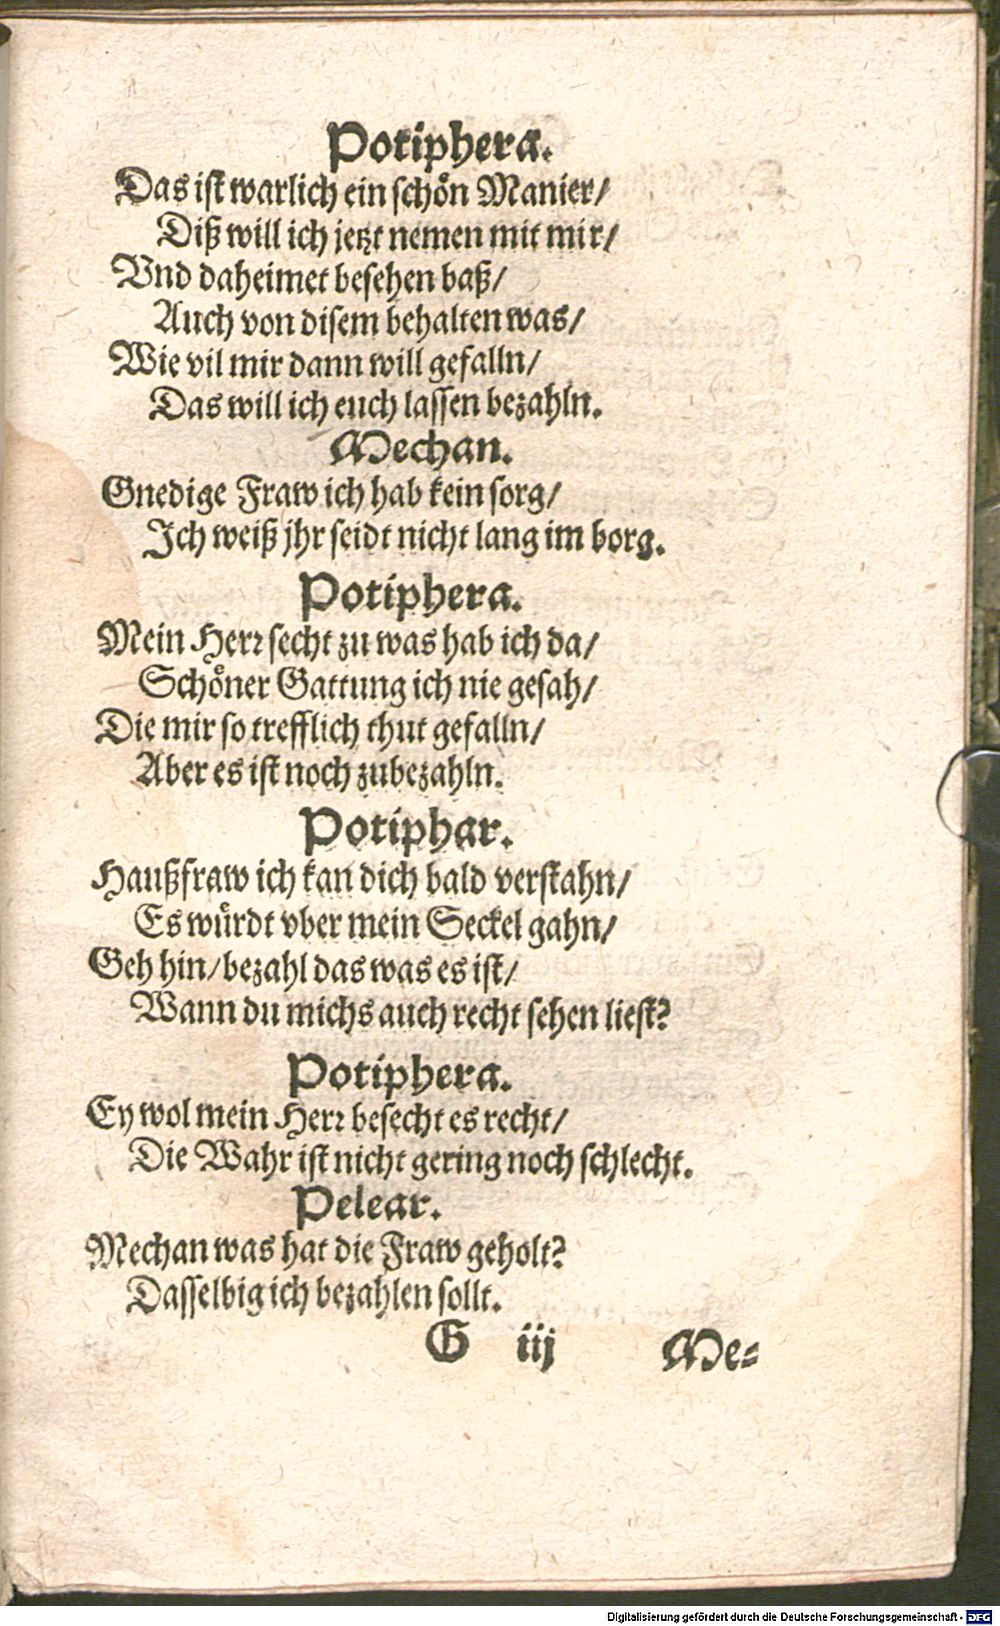 Potiphera.
Das ist warlich ein schön Manier/
Diß will ich jetzt nemen mit mir/
Vnd daheimet besehen baß/
Auch von disem behalten was/
Wie vil mir dann will gefalln/
Das will ich euch lassen bezahln.
Mechan.
Gnedige Fraw ich hab kein sorg/
Ich weiß jhr seidt nicht lang im borg.
Potiphera.
Mein Herr secht zu was hab ich da/
Schöner Gattung ich nie gesah/
Die mir so trefflich thut gefalln/
Aber es ist noch zubezahln.
Potiphar.
Haußfraw ich kan dich bald verstahn/
Es würdt vber mein Seckel gahn/
Geh hin/ bezahl das was es ist/
Wann du michs auch recht sehen liest?
Potiphera.
Ey wol mein Herr besecht es recht/
Die Wahr ist nicht gering noch schlecht.
Pelear.
Mechan was hat die Fraw geholt?
Dasselbig ich bezahlen sollt.
G iij Me-
Digitalisierung gefördert durch die Deutsche Forschungsgemeinschaft - DFG